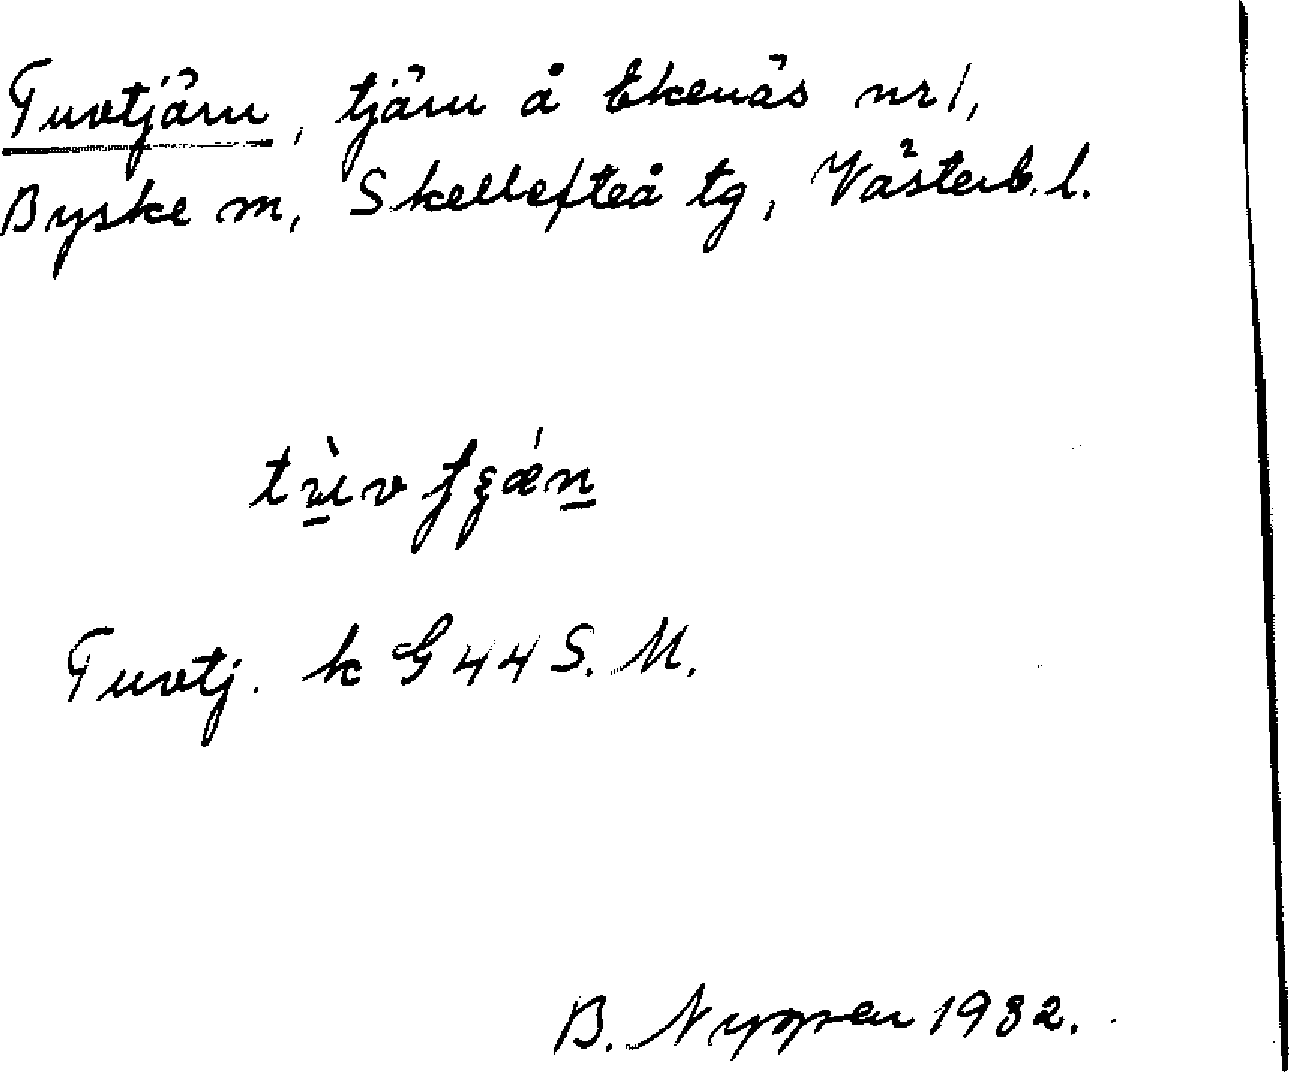 Tuvtjärn, tjärn å Ekenäs nr 1,
Byske m, Skellefteå tg, Västerb. l.
Tuvtj. k G 44 S. M.
B. 1932.